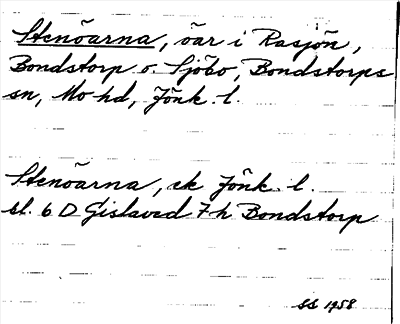 Stenöarna, öar i Rasjön,
Bondstorp o. Sjöbo, Bondstorps
sn, Mo hd, Jönk. l.
Stenöarna, ek Jönk. l.
bl. 6 D Gislaved 7 h Bondstorp
SS 1958